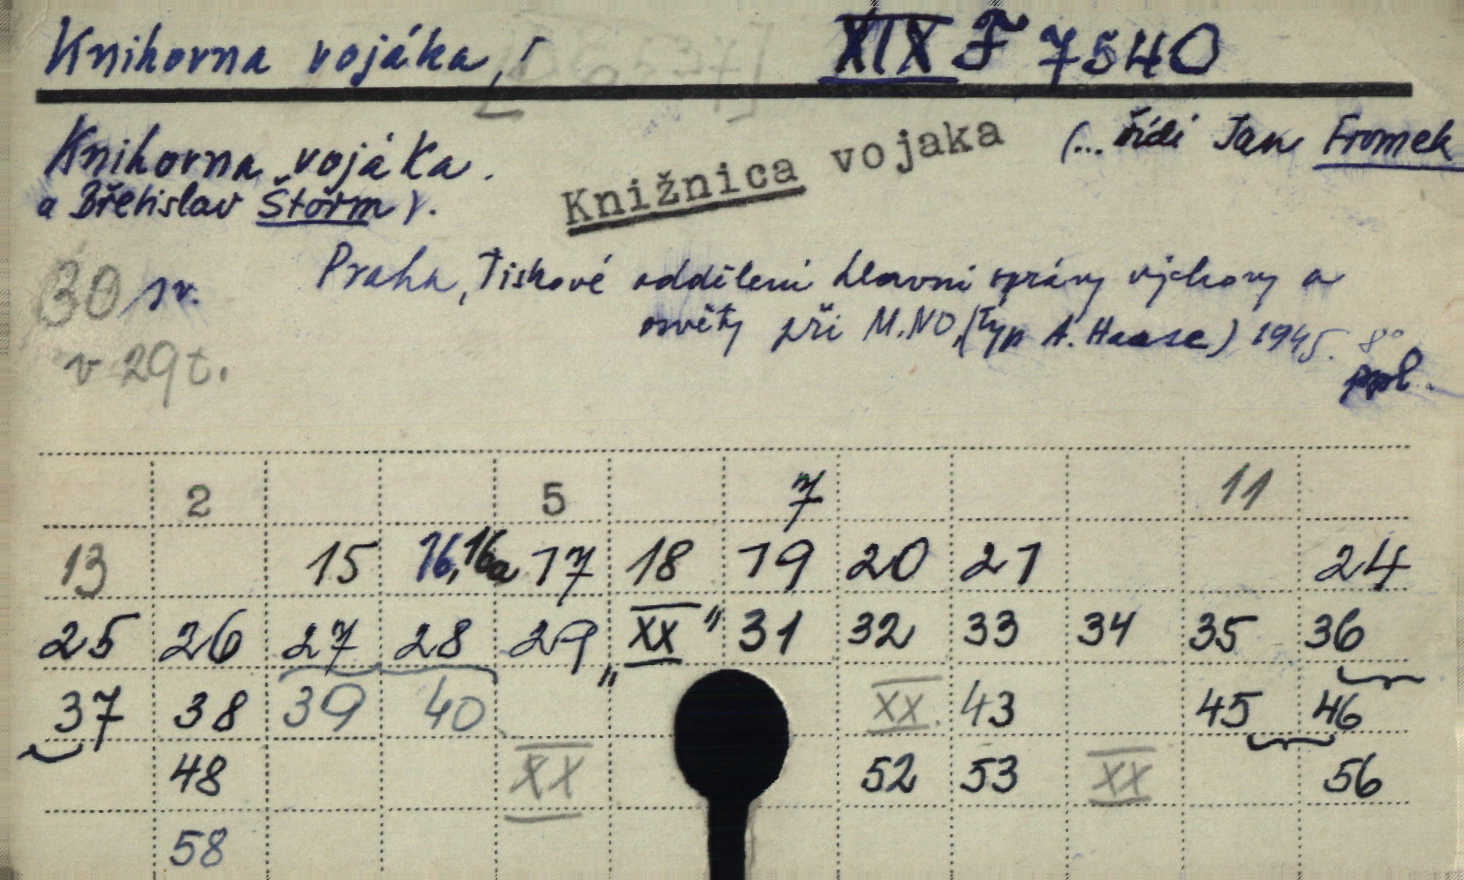 Knihovna vojáka, XIX F 7540
Knihovna vojáka. Knižnica vojaka (... řídí Jan Fromek
a Břetislav Štorm).
30 sv. Praha, Tiskové oddělení hlavní správy výchovy a
osvěty při M.NO, (Typ A. Haase) 1945. 8°
v 29 t. ppl.
2 5 7 11
13 15 16, 16a 17 18 19 20 21 24
25 26 27 28 29 " XX " 31 32 33 34 35 36
37 38 39 40 XX. 43 45 46
48 XX 52 53 XX 56
58